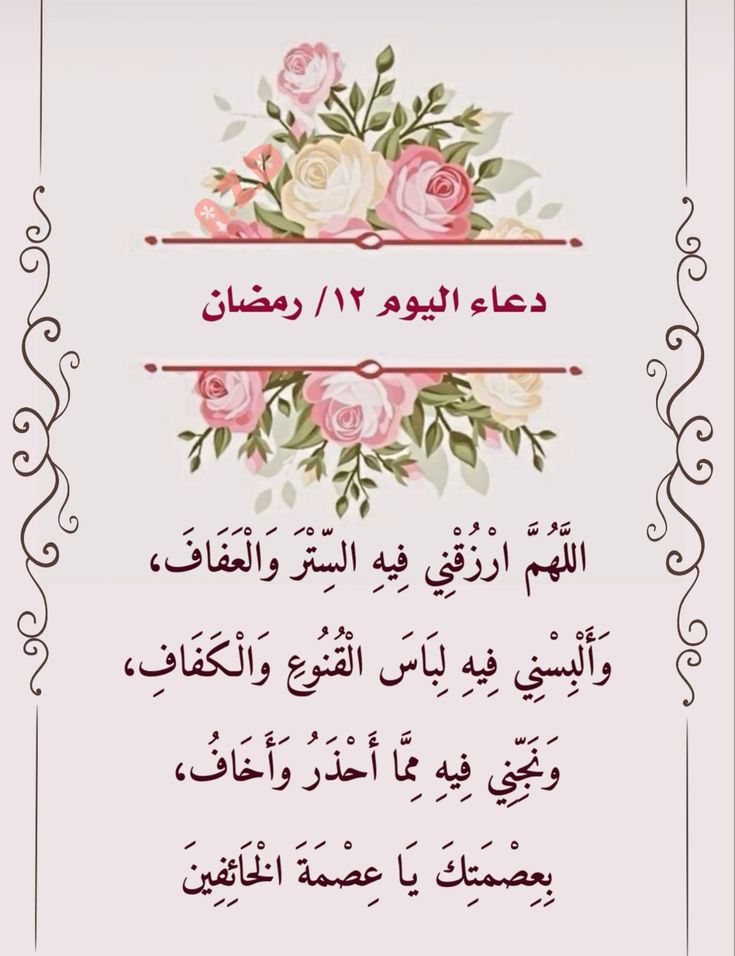 دعاء اليوم ١٢/ رمضان
اللَّهُمَّ ارْزُقْنِي فِيهِ السِّتْرَ وَالْعَفَافَ،
وَأَلْبِسْنِي فِيهِ لِبَاسَ الْقُنُوعِ وَالْكَفَافِ،
وَنَجِّنِي فِيهِ مِمَّا أَحْذَرُ وَأَخَافُ،
بِعِصْمَتِكَ يَا عِصْمَةَ الْخَائِفِينَ